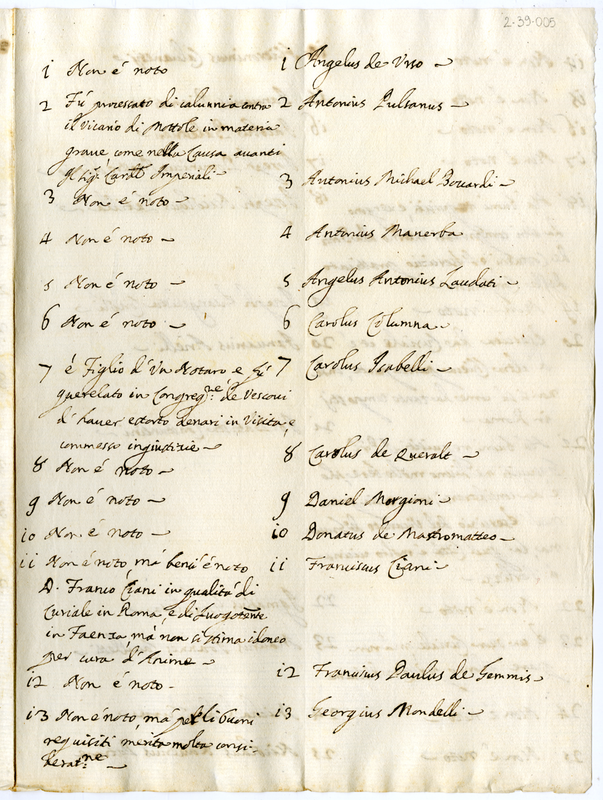 2-39-005
1 Non é noto
2 Fú processato di calunnia contra
il Vicario di Mottole in materia
graue come nella Causa auanti
Imperiali
3 Non é noto
4 Non é noto
5 Non é noto
6 Non é noto
7 é Figlio d'Un Notaro e fú
querelato in Congreg.ne de Vescoui
d'hauer estorto denari in Visita, e
commesse ingiustizie
8 Non é noto
9 Non é noto
10 Non é noto
11 Non é noto, má bensi é noto
D. Franco Ciani in qualitá di
Curiale in Roma, e di Luogotente
in Faenza, má non si stima idoneo
per cura d'Anime
12 Non é noto
13 Non é noto, má per li buoni
requisiti merita molta consi
derat.ne
1 Angelus de Urso
2 Antonius Pulsanus
3 Antonius Michael Bouardi
4 Antonius Manerba
5 Angelus Antonius Laudati
6 Carolus Columna
7 Carolus Isabelli
8 Carolus de Queralt
9 Daniel Morgioni
10 Donatus de Mastromatteo
11 Franciscus Ciani
12 Francisus Paulus de Gemmis
13 Georgius Mondelli